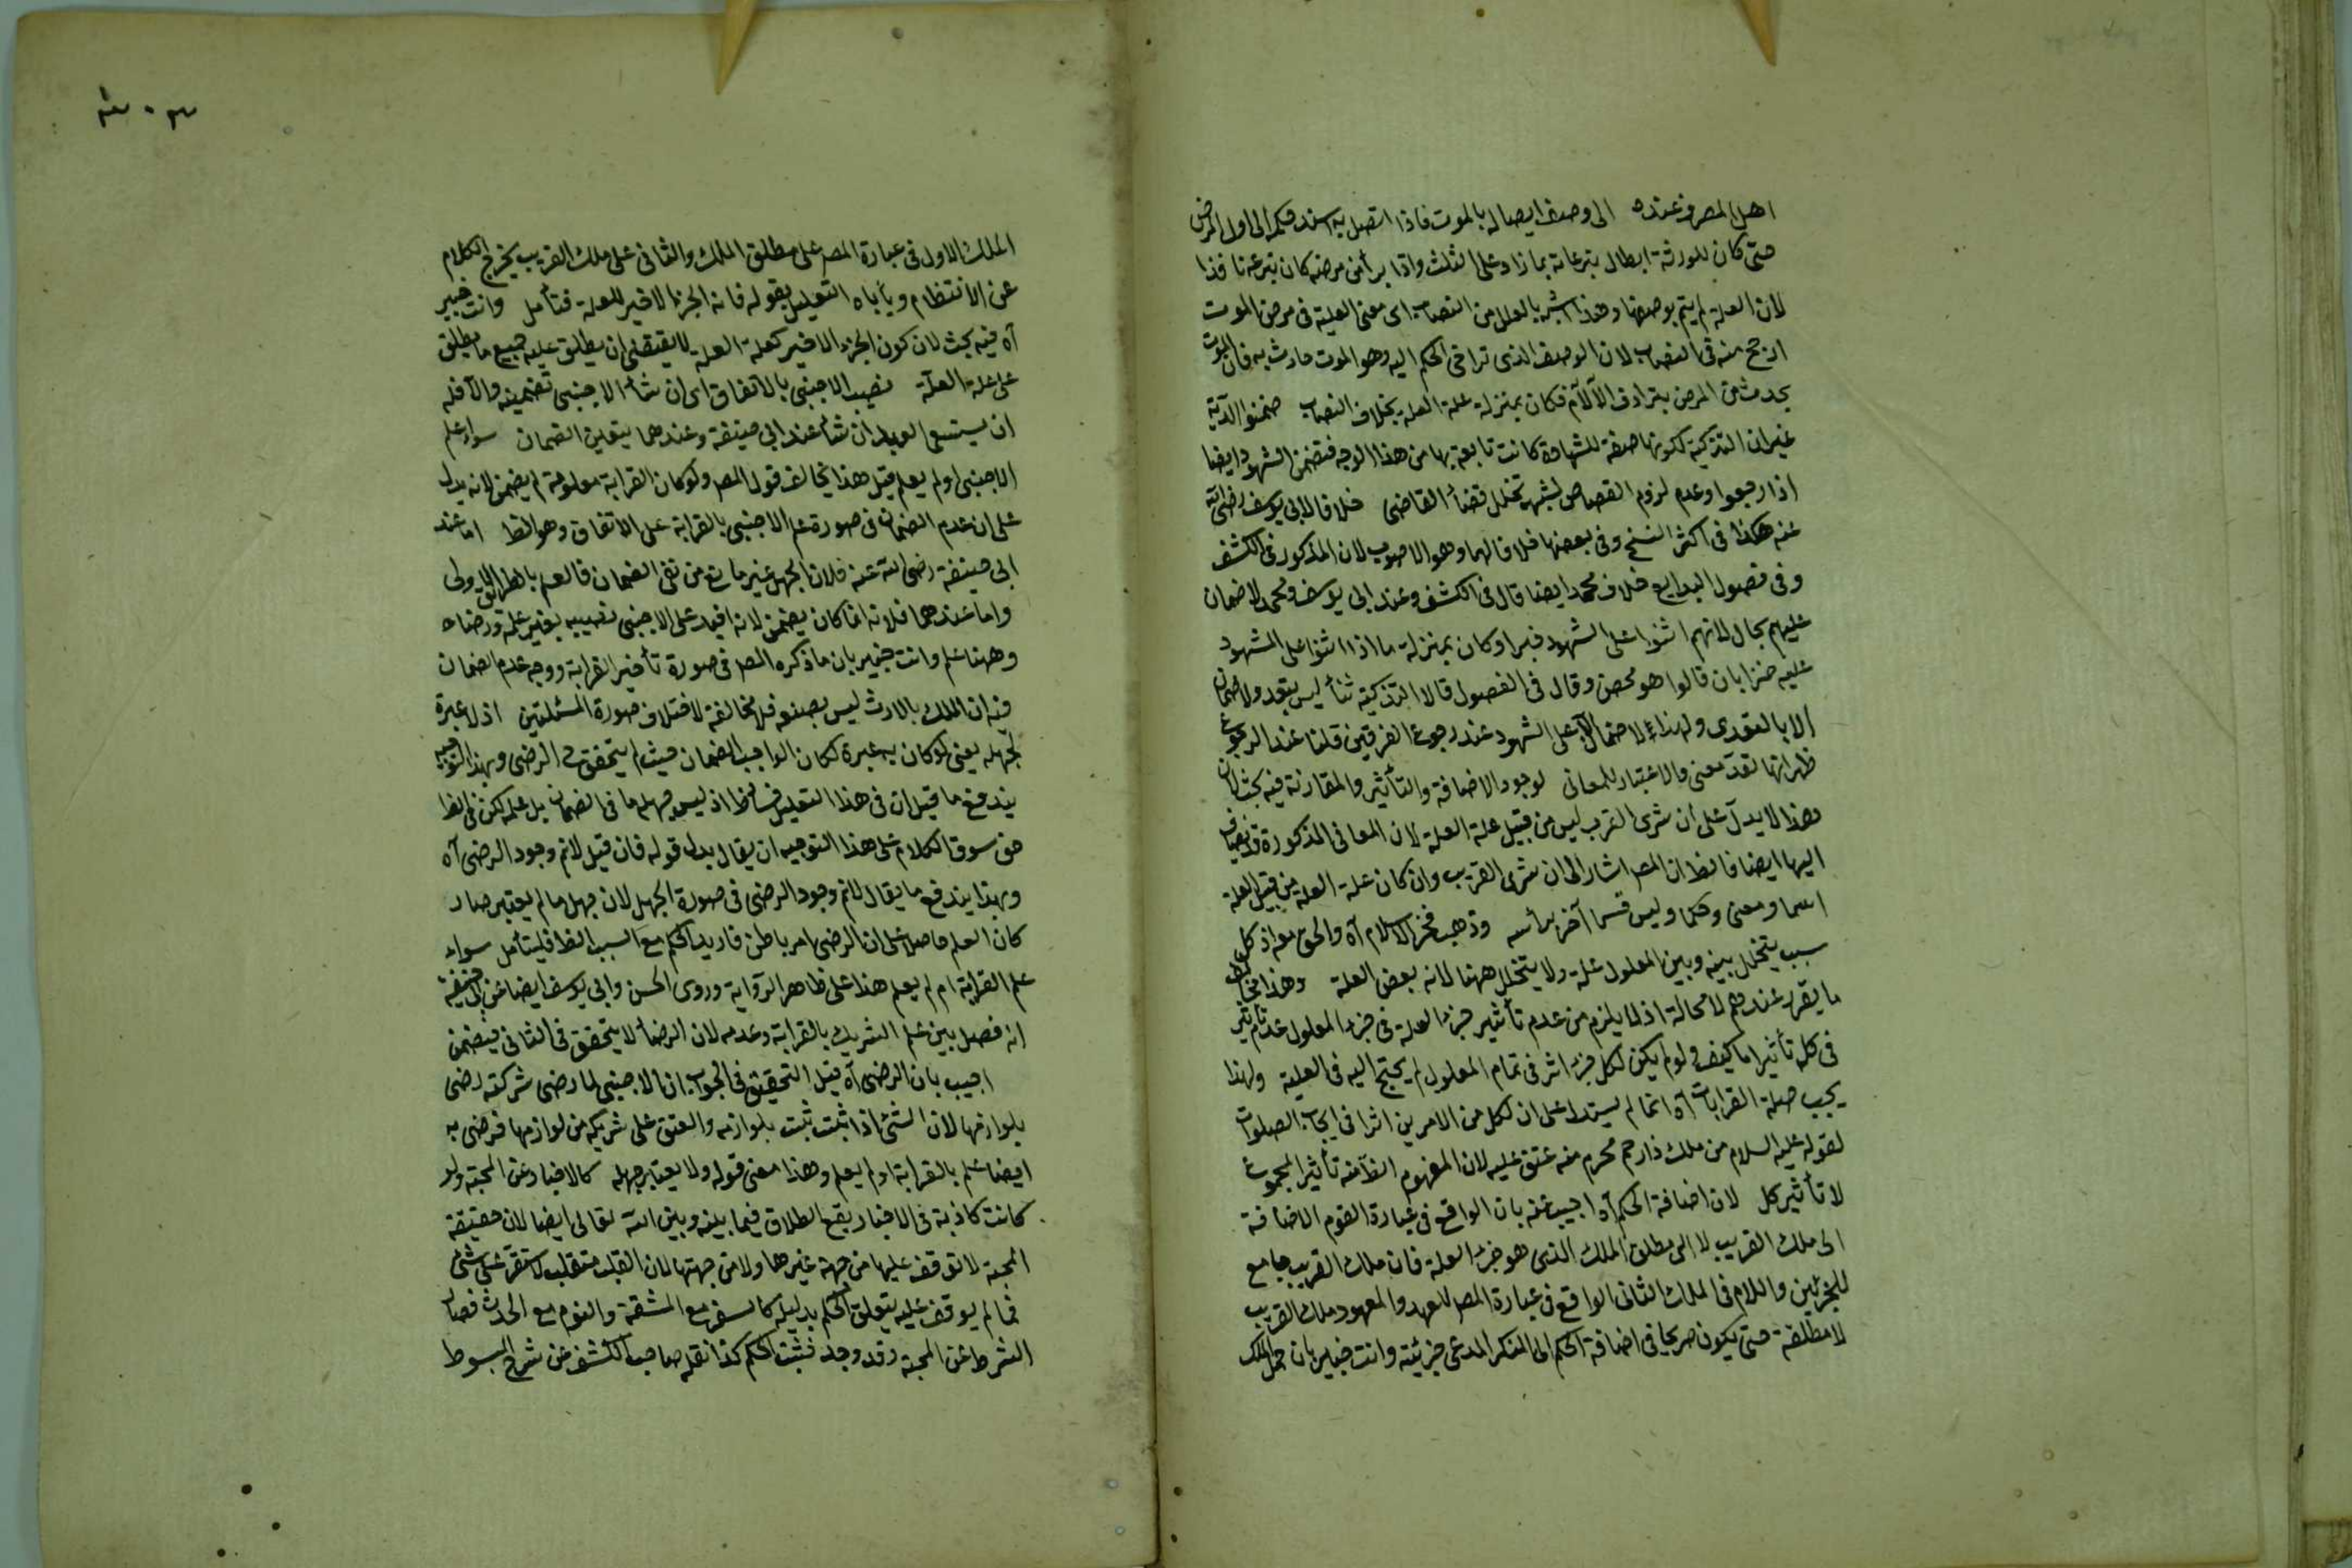 اهل المصر وعنده الى وصف ايصاله بالموت فاذا اتصل به استند حكمه الى اول المرض
حتى كان للورثة ابطال تبرعاته بما زاد على الثلث واذا برأ من مرضه كان تبرعه نافذا
لان العلة لم يتم بوصفها وهذا اشبه بالعلل من النصاب اى معنى العلية فى مرض الموت
ارجح منه فى النصاب لان الوصف الذى تراخى الحكم اليه وهو الموت حادث به فان الموت
يحدث من المرض بترادف الآلام فكان بمنزلة علة العلة بخلاف النصاب ضمنوا الدية
غير ان التزكية لكونها صفة للشهادة كانت تابعة بها من هذا الوجه فتضمن الشهود ايضا
اذا رجعوا وعدم لزوم القصاص لشبهة تخلل قضاء القاضى خلافا لابى يوسف رضى الله
عنه هكذا فى اكثر النسخ وفى بعضها خلافا لهما وهو الاصوب لان المذكور فى الكشف
وفى فصول البدايع خلاف محمد ايضا قال فى الكشف وعند ابى يوسف ومحمد لا ضمان
عليهم بحال لانهم اثنوا على الشهود خيرا وكان بمنزلة ما اذا اثنوا على المشهود
عليه خيرا بان قالوا هو محصن وقال فى الفصول قالا التزكية ثناء ليس بتعد ولا ضمان
الا بالتعدى ولهذا لا ضمان الا على الشهود عند رجوع الفريقين قلنا عند الرجوع
ظهر انها تعد معنى والاعتبار للمعانى لوجود الاضافة والتأثير والمقارنة فيه بحث لان
هذا لا يدل على ان شرى القريب ليس من قبيل علة العلة لان المعانى المذكورة قد يضاف
اليها ايضا فالظ ان المص اشار الى ان شرى القريب وان كان علة العلة من قبيل العلة
اسما ومعنى وحكما وليس قسما آخر برأسه وذهب فخر الاسلام آه والحق معه اذ كل
سبب يتخلل بينه وبين المعلول علة ولا يتخلل ههنا لانه بعض العلة وهذا مخالف
ما يقرر عندهم لا محالة اذ لا يلزم من عدم تأثير جزء العلة فى جزء المعلول عدم تأثير
فى كل تأثيرا ما كيف ولو لم يكن لكل جزء اثر فى تمام المعلول لم يحتج اليه فى العلية ولهذا
يجب صلة القرابات آه انما لم يستدل على ان لكل من الامرين اثرا فى ايجاب الصلوات
لقوله عليه السلام من ملك ذا رحم محرم منه عتق عليه لان المفهوم الظ منه تأثير المجموع
لا تأثير كل لان اضافة الحكم آه اجيب عنه بان الواقع فى عبارة القوم الاضافة
الى ملك القريب لا الى مطلق الملك الذى هو جزء العلة فان ملك القريب جامع
للجزئين واللام فى الملك الثانى الواقع فى عبارة المص للعهد والمعهود ملك القريب
لا مطلقه حتى يكون صريحا فى اضافة الحكم الى المنكر المدعى جزئيته وانت خبير بان حمل الملك
الملك الاول فى عبارة المص على مطلق الملك والثانى على ملك القريب يخرج الكلام
عن الانتظام ويأباه التعليل بقوله فانه الجزء الاخير للعلة فتأمل وانت خبير
آه فيه بحث لان كون الجزء الاخير كعلة العلة لا يقتضى ان يطلق عليه جميع ما يطلق
على علة العلة نصيب الاجنبى بالاتفاق اى ان شاء الاجنبى تضمينه والا فله
ان يستسعى العبد ان شاء عند ابى حنيفة وعندهما يتعين الضمان سواء علم
الاجنبى او لم يعلم قيل هذا يخالف قول المص ولو كان القرابة معلومة لم يضمن لانه يدل
على ان عدم الضمان فى صورة علم الاجنبى بالقرابة على الاتفاق وهو الظ اما عند
ابى حنيفة رضى الله عنه فلان الجهل غير مانع من نفى الضمان فالعلم بالطريق الاولى
واما عندهما فلانه انما كان يضمن لانه افسد على الاجنبى نصيبه بغير علمه ورضاه
وههنا علم وانت خبير بان ما ذكره المص فى صورة تأخير القرابة ووجه عدم الضمان
فيه ان الملك بالارث ليس بصنعه فلا مخالفة لاختلاف صورة المسئلتين اذ لا عبرة
لجهله يعنى لو كان به عبرة لكان الواجب الضمان حيث لم يتحقق الرضى وبهذا التوجيه
يندفع ما قيل ان فى هذا التعليل فساد اذ ليس جهله مانع الضمان بل علمه لكن فى الظ
حق سوق الكلام على هذا التوجيه ان يقال بدل قوله فان قيل لا نم وجود الرضى آه
وبهذا يندفع ما يقال لا نم وجود الرضى فى صورة الجهل لان جهل ما لم يعتبر صار
كان العلم حاصل على ان الرضى امر باطن فاديد الحكم مع السبب الظ فليتأمل سواء
علم القرابة ام لم يعلم هذا على ظاهر الرواية وروى الحسن وابى يوسف ايضا عن ابى حنيفة
انه فصل بين علم الشريك بالقرابة وعدمه لان الرضا لا يتحقق فى الثانى فيضمن
اجيب بان الرضى آه قيل التحقيق فى الجواب ان الاجنبى لما رضى شركته رضى
بلوازمها لان الشئ اذا ثبت ثبت بلوازمه والعتق على شريكه من لوازمها فرضى به
ايضا علم بالقرابة او لم يعلم وهذا معنى قوله ولا يعتبر جهله كالاخبار عن المحبة ولو
كانت كاذبة فى الاخبار يقع الطلاق فيما بينه وبين الله تعالى ايضا لان حقيقة
المحبة لا توقف عليها من جهة غيرها ولا من جهتها لان القلب متقلب لا يستقر على شئ
فما لم يوقف عليه يتعلق الحكم بدليله كالسفر مع المشقة والنوم مع الحدث فصار
الشرط عن المحبة وقد وجد فثبت الحكم كذا نقله صاحب الكشف عن شرح المبسوط